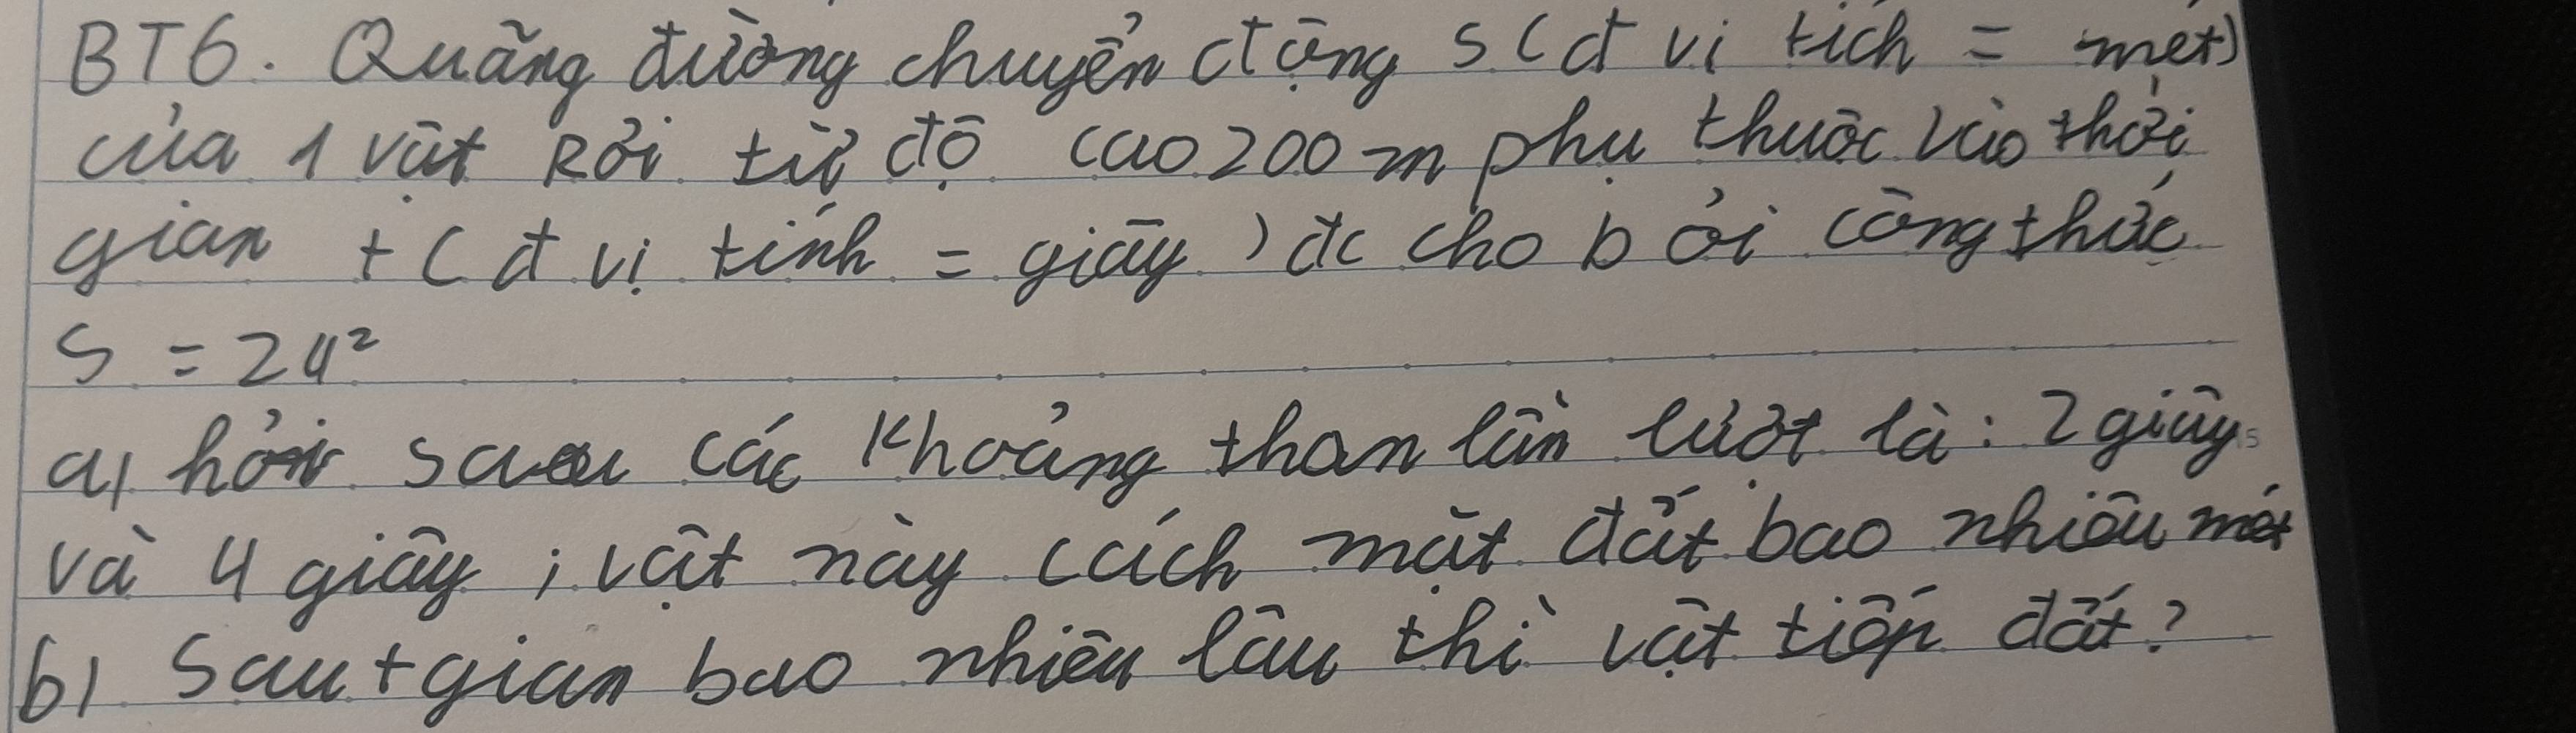 BT6. Quãng đường chuyển động s (đ vị tích = mét)
của 1 vật Rơi từ độ cao 200 m phụ thuộc vào thời
gian t (đ vị tính = giây) đc cho bởi công thức
S = 24²
a) hỏi sau các khoảng than lần lượt là: 2 giây
và 4 giây ; vật này cách mặt đất bao nhiêu mét
b) Sau t gian bao nhiêu lâu thì vật tiếp đất?